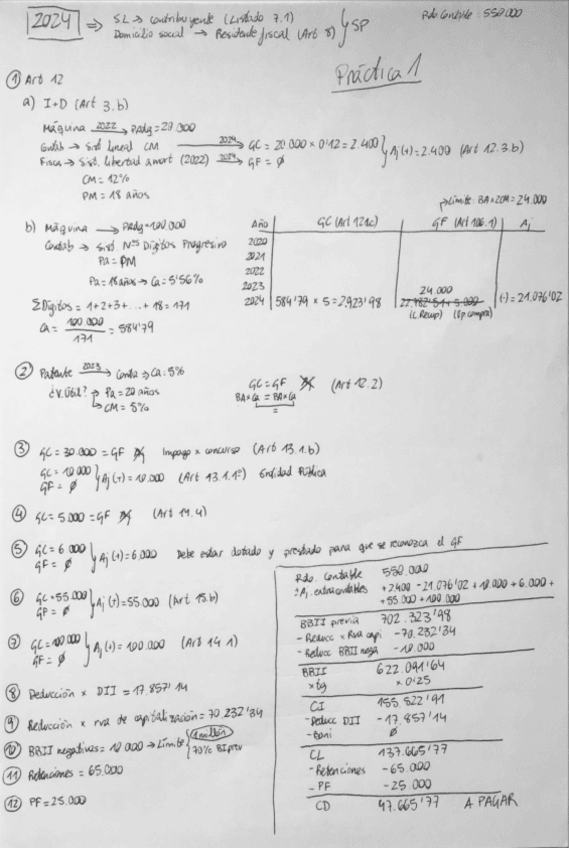 2024 ⇒ S.L → Contribuyente (Listado 7.1) } SP
Domicilio social → Residente fiscal (Art 8)
Rdo Contable: 550.000
Práctica 1
① Art 12
a) I+D (Art 3.b)
Máquina 2022 → PAdq = 20.000
Contab → Sist lineal CM 2024 → GC = 20.000 x 0'12 = 2.400 } Aj (+) = 2.400 (Art 12.3.b)
Fisca → Sist. libertad amort (2022) 2024 → GF = Ø
CM = 12%
PM = 18 años
b) Máquina → PAdq = 100.000
Contab → Sist. Nos Dígitos Progresivo
Pa = PM
Pa = 18 años → Ca = 5'56%
Σ Dígitos = 1+2+3+...+18 = 171
Ca = 100 000 / 171 = 584'79
Límite: BA x 2CM = 24.000
Año GC (Art 12.1c) GF (Art 106.1) Aj
2020
2021
2022
2023
24.000
2024 584'79 x 5 = 2.923'98 (-) = 21.076'02
(L Recup) (Ep. compra)
② Patente 2023 → Conta → Ca: 5%
¿V. Útil? → Pa = 20 años
→ CM = 5%
GC = GF (Art 12.2)
BA x Ca = BA x Ca
=
③ GC = 30.000 = GF Impago x concurso (Art 13.1.b)
GC = 10.000 } Aj (+) = 10.000 (Art 13.1.1º) Entidad Pública
GF = Ø
④ GC = 5.000 = GF (Art 14.4)
⑤ GC = 6.000 } Aj (+) = 6.000 Debe estar dotado y prestado para que se reconozca el GF
GF = Ø
⑥ GC = 55.000 } Aj (+) = 55.000 (Art 15.b)
GF = Ø
⑦ GC = 100.000 } Aj (+) = 100.000 (Art 14.1)
GF = Ø
⑧ Deducción x DII = 17.857'14
⑨ Reducción x rva de capitalización = 70.232'34
⑩ BBII negativas = 10.000 → Límite { 1 millón
70% BI prev
⑪ Retenciones = 65.000
⑫ PF = 25.000
Rdo. Contable 550.000
± Aj. extracontables +2.400 - 21.076'02 + 10.000 + 6.000 +
+ 55.000 + 100.000
BBII previa 702.323'98
- Reducc x Rva capi - 70.232'34
- Reducc BBII nega - 10.000
BBII 622.091'64
x tg x 0'25
CI 155.522'91
- Deducc DII - 17.857'14
- Boni Ø
CL 137.665'77
- Retenciones - 65.000
- PF - 25.000
CD 47.665'77 A PAGAR